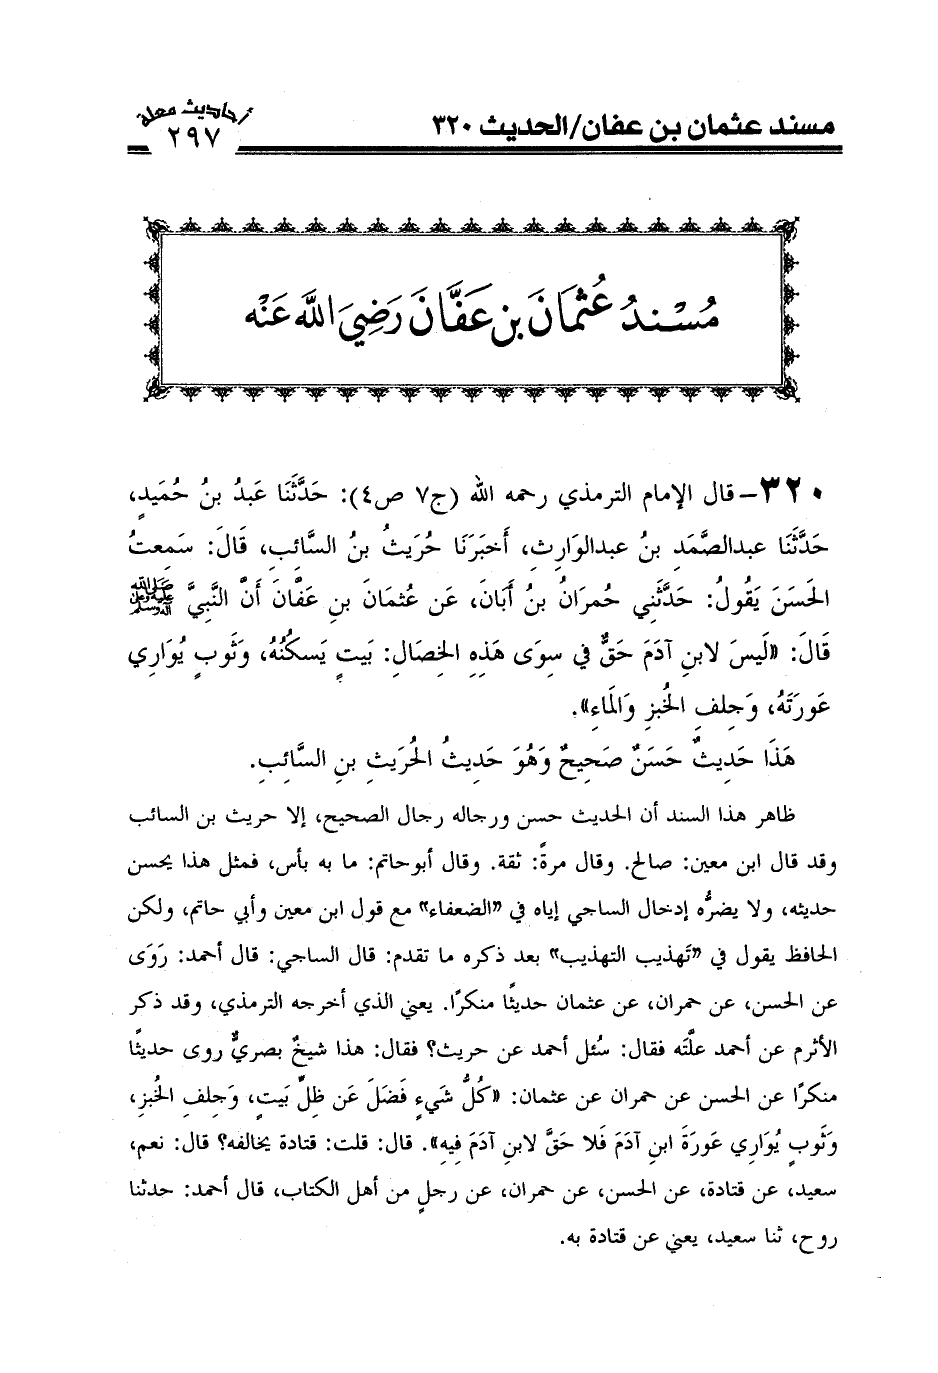 مسند عثمان بن عفان/الحديث ٣٢٠
أحاديث معلة
٢٩٧
مُسْنَدُ عُثْمَانَ بنِ عَفَّانَ رَضِيَ اللَّه عَنْه
٣٢٠- قال الإمام الترمذي رحمه الله (ج٧ ص٤): حَدَّثَنَا عَبدُ بنُ حُمَيدٍ،
حَدَّثَنَا عبدالصَّمَدِ بنُ عبدالوَارِثِ، أَخبَرَنَا حُرَيثُ بنُ السَّائِبِ، قَالَ: سَمِعتُ
الحَسَنَ يَقُولُ: حَدَّثَنِي حُمرَانُ بنُ أَبَانَ، عَن عُثمَانَ بنِ عَفَّانَ أَنَّ النَّبِيَّ ﷺ
قَالَ: «لَيسَ لابنِ آدَمَ حَقٌّ فِي سِوَى هَذِهِ الخِصَالِ: بَيتٍ يَسكُنُهُ، وَثَوبٍ يُوَارِي
عَورَتَهُ، وَجِلفِ الخُبزِ وَالمَاءِ».
هَذَا حَدِيثٌ حَسَنٌ صَحِيحٌ وَهُوَ حَدِيثُ الحُرَيثِ بنِ السَّائِبِ.
ظاهر هذا السند أن الحديث حسن ورجاله رجال الصحيح، إلا حريث بن السائب
وقد قال ابن معين: صالح. وقال مرةً: ثقة. وقال أبوحاتم: ما به بأس، فمثل هذا يحسن
حديثه، ولا يضرُّه إدخال الساجي إياه في «الضعفاء» مع قول ابن معين وأبي حاتم، ولكن
الحافظ يقول في «تهذيب التهذيب» بعد ذكره ما تقدم: قال الساجي: قال أحمد: رَوَى
عن الحسن، عن حمران، عن عثمان حديثًا منكرًا. يعني الذي أخرجه الترمذي، وقد ذكر
الأثرم عن أحمد علّته فقال: سُئل أحمد عن حريث؟ فقال: هذا شيخٌ بصريٌّ روى حديثًا
منكرًا عن الحسن عن حمران عن عثمان: «كُلُّ شَيءٍ فَضَلَ عَن ظِلِّ بَيتٍ، وَجِلفِ الخُبزِ،
وَثَوبٍ يُوَارِي عَورَةَ ابنِ آدَمَ فَلا حَقَّ لابنِ آدَمَ فِيهِ». قال: قلت: قتادة يخالفه؟ قال: نعم،
سعيد، عن قتادة، عن الحسن، عن حمران، عن رجلٍ من أهل الكتاب، قال أحمد: حدثنا
روح، ثنا سعيد، يعني عن قتادة به.